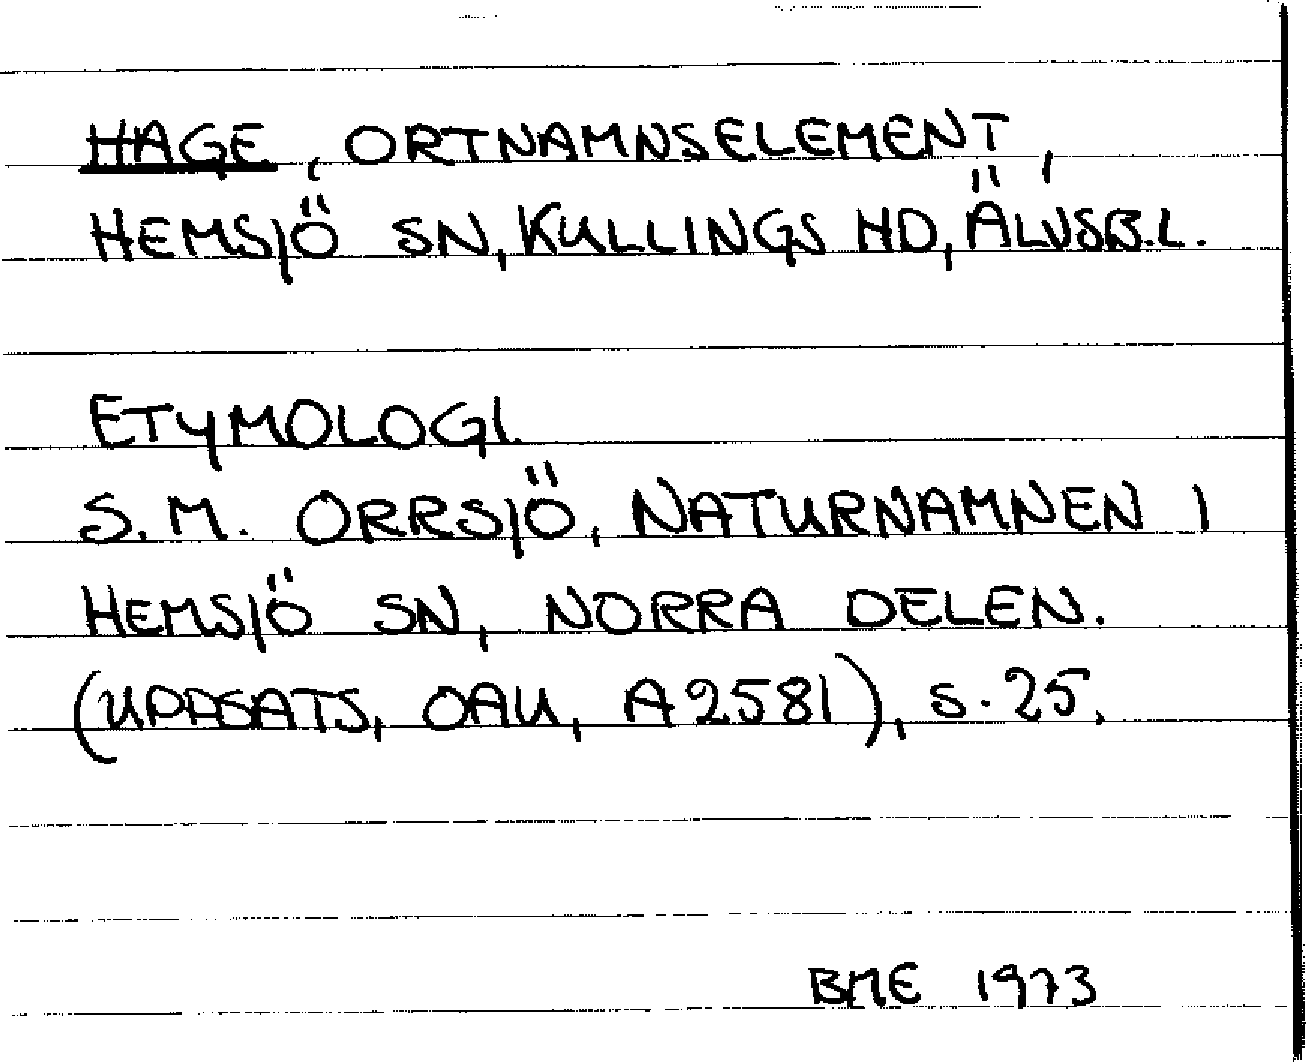 HAGE, ORTNAMNSELEMENT,
HEMSJÖ SN, KULLINGS HD, ÄLVSB.L.
ETYMOLOGI.
S.M. ORRSJÖ, NATURNAMNEN I
HEMSJÖ SN, NORRA DELEN.
(UPPSATS, OAU, A2581), S. 25.
BME 1973